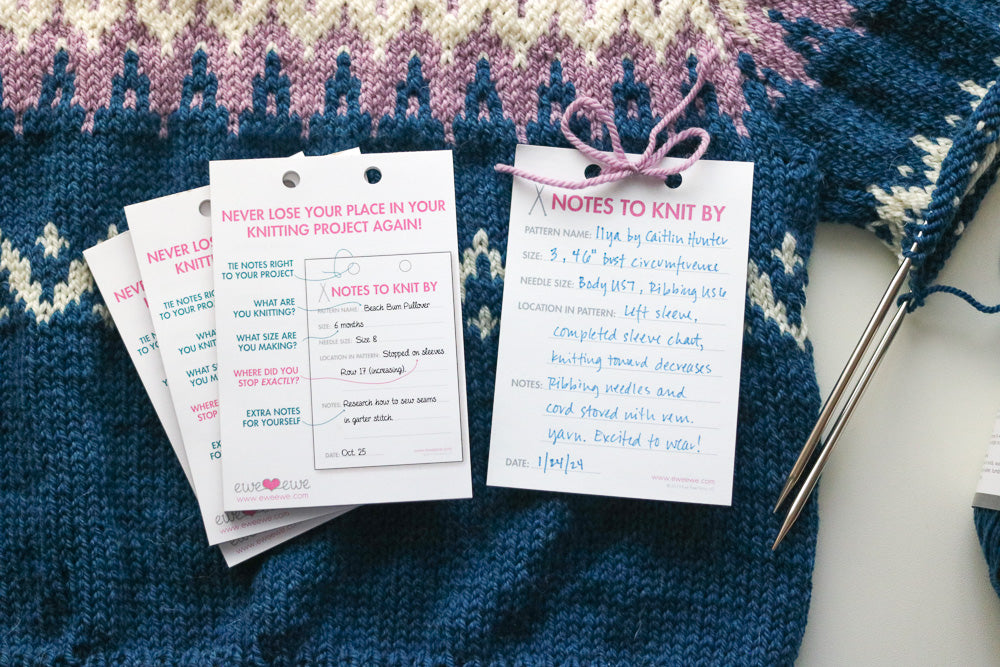 NEVER LOSE
KNITTING
TIE NOTES RIGHT
TO YOUR PROJECT
WHAT
YOU KNITTING?
WHAT S
YOU M
WHERE
STOP
FOR
www.eweewe.com
NEVER LOSE YOUR PLACE IN YOUR
KNITTING PROJECT AGAIN!
TIE NOTES RIGHT
TO YOUR PROJECT
WHAT ARE
YOU KNITTING?
WHAT SIZE ARE
YOU MAKING?
WHERE DID YOU
STOP EXACTLY?
EXTRA NOTES
FOR YOURSELF
NOTES TO KNIT BY
PATTERN NAME: Beach Bum Pullover
SIZE: 6 months
NEEDLE SIZE: Size 8
LOCATION IN PATTERN: Stopped on sleeves
Row 17 (increasing).
NOTES: Research how to sew seams
in garter stitch.
DATE: Oct. 25
www.eweewe.com
ewe ewe
www.eweewe.com
NOTES TO KNIT BY
PATTERN NAME: Ilya by Caitlin Hunter
SIZE: 3, 46" bust circumference
NEEDLE SIZE: Body US7, Ribbing US6
LOCATION IN PATTERN: Left sleeve,
completed sleeve chart,
knitting toward decreases
NOTES: Ribbing needles and
cord stored with rem.
yarn. Excited to wear!
DATE: 1/24/24
www.eweewe.com